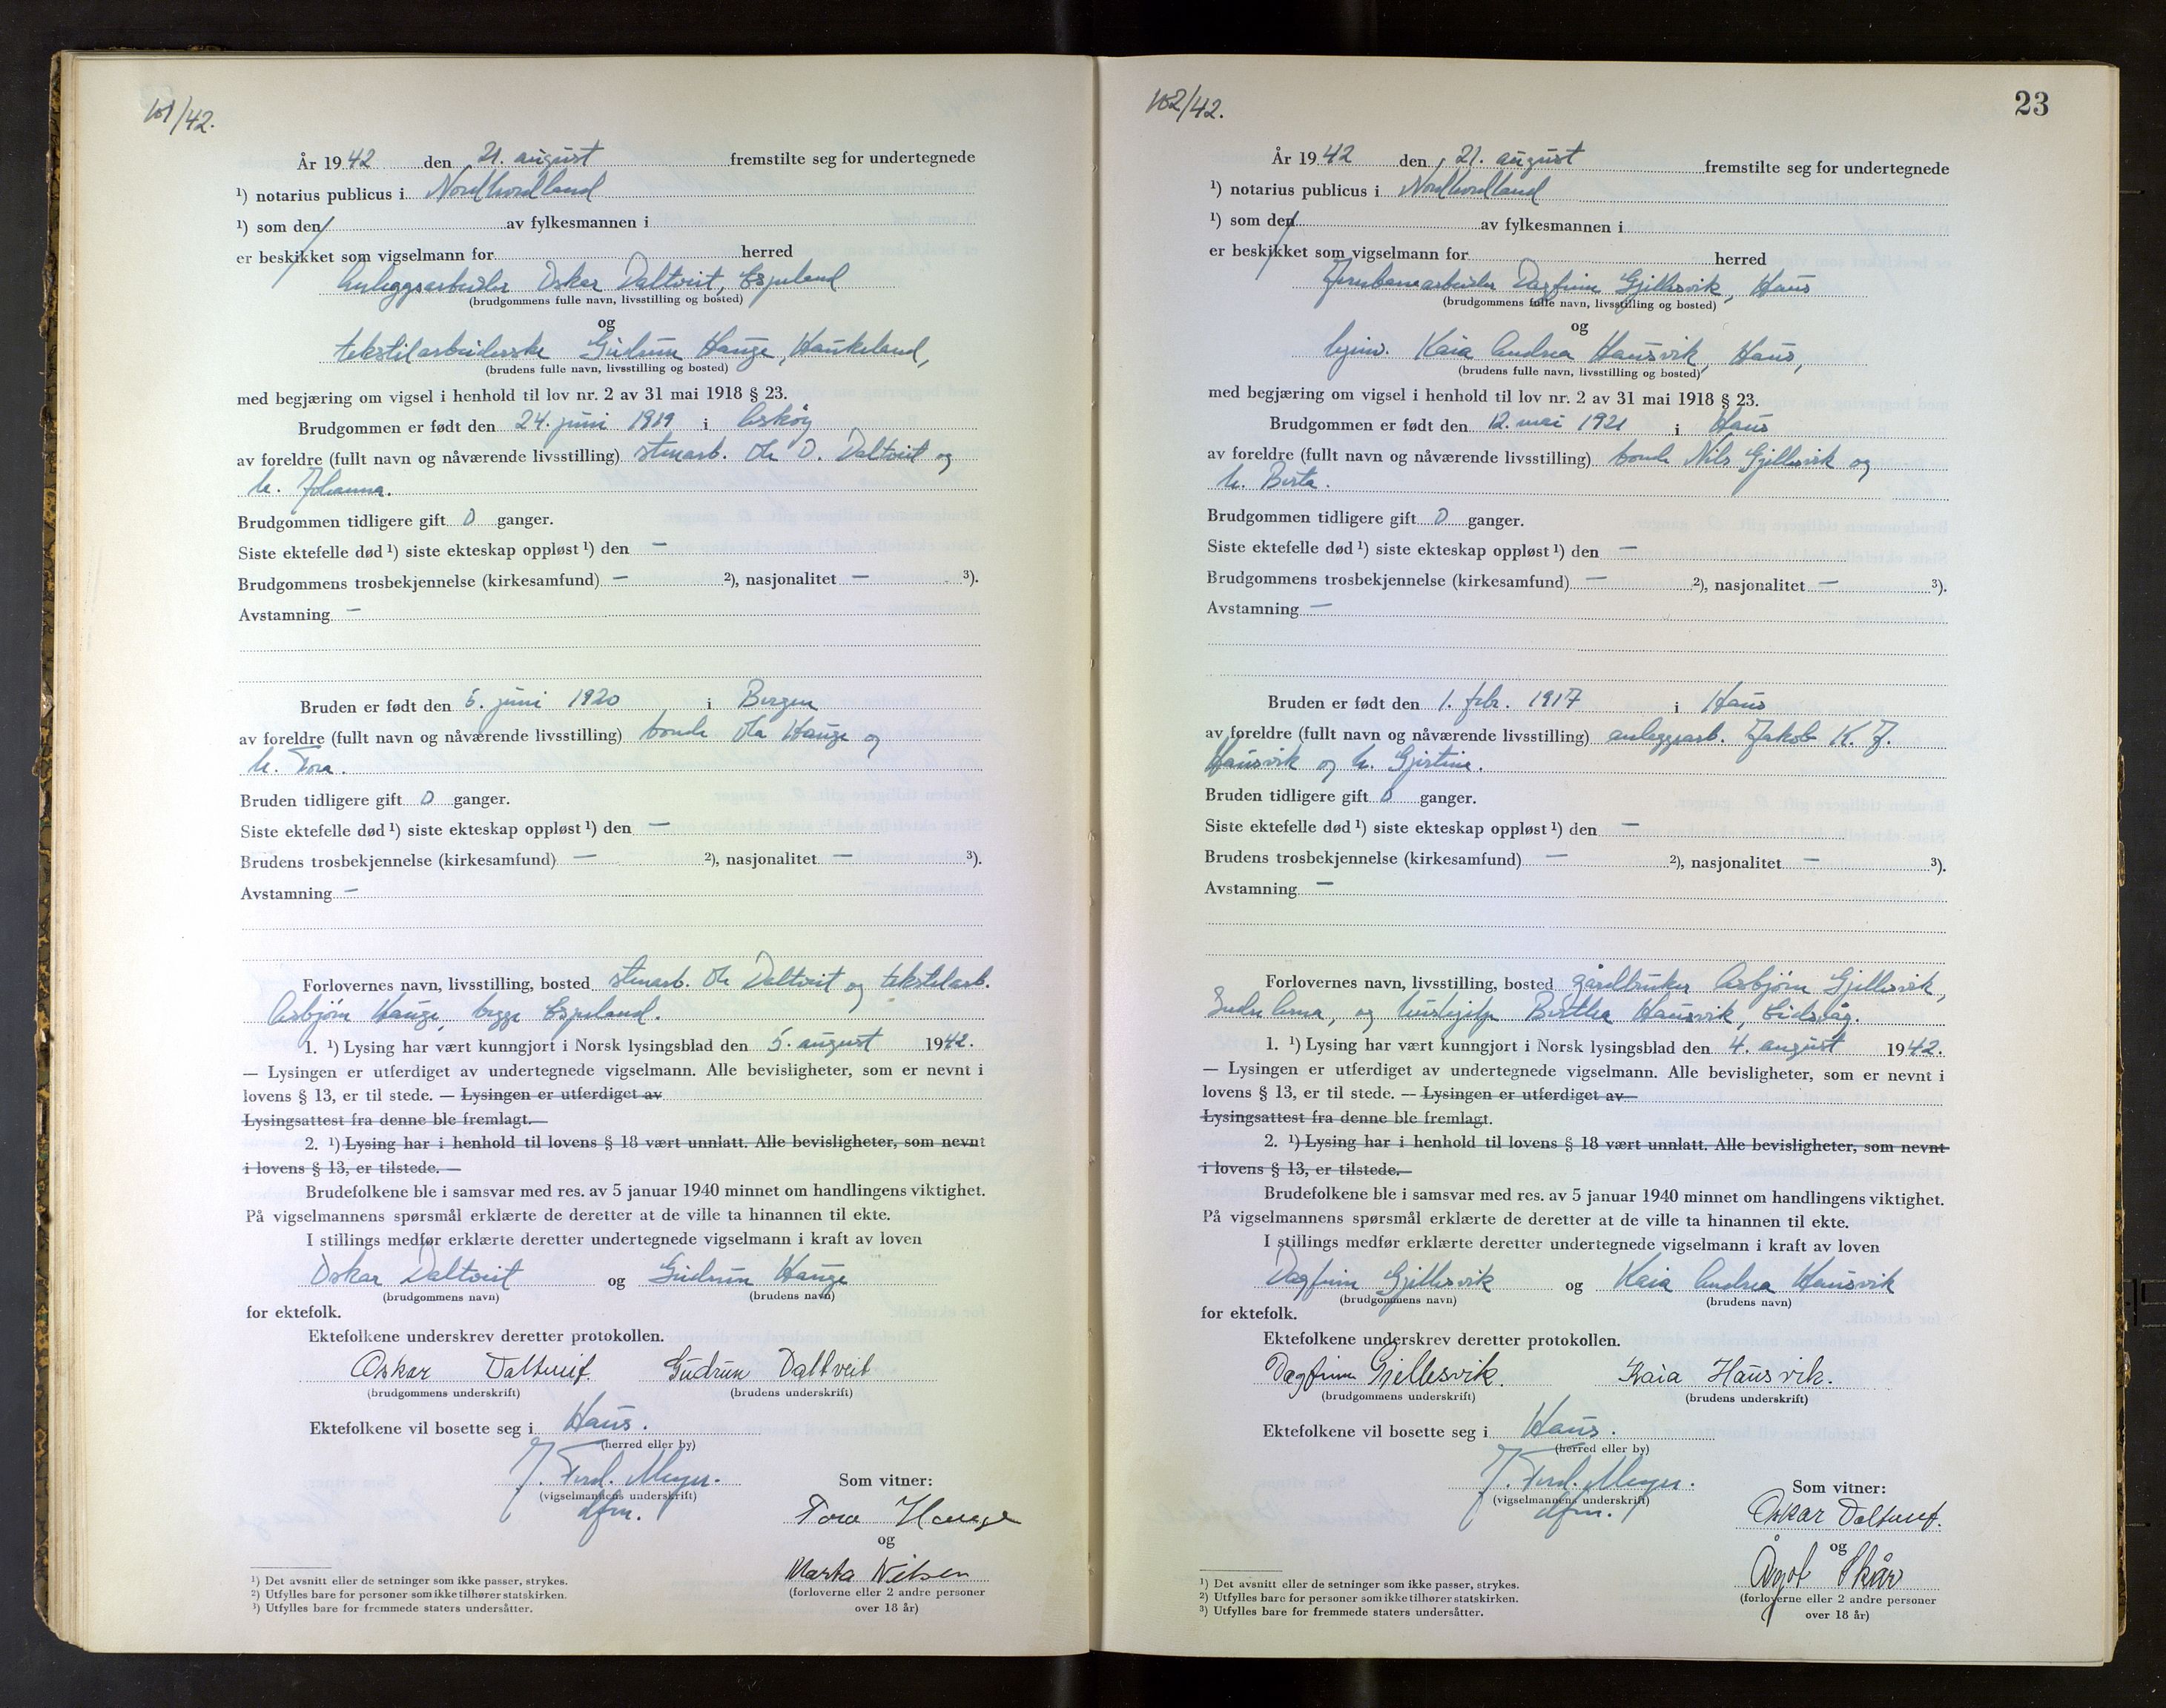 101/42.
År 1942 den 21. august fremstilte seg for undertegnede
¹) notarius publicus i Nordhordland
¹) som den av fylkesmannen i
er beskikket som vigselmann for herred
Anleggsarbeider Oskar Daltveit, Espeland
(brudgommens fulle navn, livsstilling og bosted)
og
tekstilarbeiderske Gudrun Hauge, Haukeland,
(brudens fulle navn, livsstilling og bosted)
med begjæring om vigsel i henhold til lov nr. 2 av 31 mai 1918 § 23.
Brudgommen er født den 24. juni 1919 i Askøy
av foreldre (fullt navn og nåværende livsstilling) stenarb. Ole O. Daltveit og
h. Johanna.
Brudgommen tidligere gift 0 ganger.
Siste ektefelle død ¹) siste ekteskap oppløst ¹) den —
Brudgommens trosbekjennelse (kirkesamfund) — ²), nasjonalitet — ³).
Avstamning —
Bruden er født den 5. juni 1920 i Bergen
av foreldre (fullt navn og nåværende livsstilling) bonde Ola Hauge og
h. Tora.
Bruden tidligere gift 0 ganger.
Siste ektefelle død ¹) siste ekteskap oppløst ¹) den —
Brudens trosbekjennelse (kirkesamfund) — ²), nasjonalitet — ³).
Avstamning —
Forlovernes navn, livsstilling, bosted stenarb. Ole Daltveit og tekstilarb.
Asbjörn Hauge, begge Espeland.
1. ¹) Lysing har vært kunngjort i Norsk lysingsblad den 5. august 1942.
— Lysingen er utferdiget av undertegnede vigselmann. Alle bevisligheter, som er nevnt i
lovens § 13, er til stede. — Lysingen er utferdiget av
Lysingsattest fra denne ble fremlagt.
2. ¹) Lysing har i henhold til lovens § 18 vært unnlatt. Alle bevisligheter, som nevnt
i lovens § 13, er tilstede. —
Brudefolkene ble i samsvar med res. av 5 januar 1940 minnet om handlingens viktighet.
På vigselmannens spørsmål erklærte de deretter at de ville ta hinannen til ekte.
I stillings medfør erklærte deretter undertegnede vigselmann i kraft av loven
Oskar Daltveit og Gudrun Hauge
(brudgommens navn) (brudens navn)
for ektefolk.
Ektefolkene underskrev deretter protokollen.
Oskar Daltveit. Gudrun Daltveit
(brudgommens underskrift) (brudens underskrift)
Ektefolkene vil bosette seg i Haus.
(herred eller by)
J. Ferd. Meyer.
(vigselmannens underskrift)
dfm.
Som vitner:
Tora Hauge
og
Marta Nilsen
(forloverne eller 2 andre personer
over 18 år)
¹) Det avsnitt eller de setninger som ikke passer, strykes.
²) Utfylles bare for personer som ikke tilhører statskirken.
³) Utfylles bare for fremmede staters undersåtter.
102/42.
23
År 1942 den 21. august fremstilte seg for undertegnede
¹) notarius publicus i Nordhordland
¹) som den av fylkesmannen i
er beskikket som vigselmann for herred
Jernbanearbeider Dagfinn Gjellesvik, Haus
(brudgommens fulle navn, livsstilling og bosted)
og
hjemv. Kaia Andrea Hausvik, Haus,
(brudens fulle navn, livsstilling og bosted)
med begjæring om vigsel i henhold til lov nr. 2 av 31 mai 1918 § 23.
Brudgommen er født den 12. mai 1921 i Haus
av foreldre (fullt navn og nåværende livsstilling) bonde Nils Gjellesvik og
h. Berta.
Brudgommen tidligere gift 0 ganger.
Siste ektefelle død ¹) siste ekteskap oppløst ¹) den —
Brudgommens trosbekjennelse (kirkesamfund) — ²), nasjonalitet — ³).
Avstamning —
Bruden er født den 1. febr. 1917 i Haus
av foreldre (fullt navn og nåværende livsstilling) anleggsarb. Jakob K. J.
Hausvik og h. Gjertine.
Bruden tidligere gift 0 ganger.
Siste ektefelle død ¹) siste ekteskap oppløst ¹) den —
Brudens trosbekjennelse (kirkesamfund) — ²), nasjonalitet — ³).
Avstamning —
Forlovernes navn, livsstilling, bosted gårdbruker Asbjørn Gjellesvik,
Indre Arna, og hushjelp Berthea Hausvik, Eidsvåg.
1. ¹) Lysing har vært kunngjort i Norsk lysingsblad den 4. august 1942.
— Lysingen er utferdiget av undertegnede vigselmann. Alle bevisligheter, som er nevnt i
lovens § 13, er til stede. — Lysingen er utferdiget av
Lysingsattest fra denne ble fremlagt.
2. ¹) Lysing har i henhold til lovens § 18 vært unnlatt. Alle bevisligheter, som nevnt
i lovens § 13, er tilstede.—
Brudefolkene ble i samsvar med res. av 5 januar 1940 minnet om handlingens viktighet.
På vigselmannens spørsmål erklærte de deretter at de ville ta hinannen til ekte.
I stillings medfør erklærte deretter undertegnede vigselmann i kraft av loven
Dagfinn Gjellesvik og Kaia Andrea Hausvik
(brudgommens navn) (brudens navn)
for ektefolk.
Ektefolkene underskrev deretter protokollen.
Dagfinn Gjellesvik. Kaia Hausvik.
(brudgommens underskrift) (brudens underskrift)
Ektefolkene vil bosette seg i Haus.
(herred eller by)
J. Ferd. Meyer.
(vigselmannens underskrift)
dfm.
Som vitner:
Oskar Daltveit.
og
Ågot Skår
(forloverne eller 2 andre personer
over 18 år)
¹) Det avsnitt eller de setninger som ikke passer, strykes.
²) Utfylles bare for personer som ikke tilhører statskirken.
³) Utfylles bare for fremmede staters undersåtter.